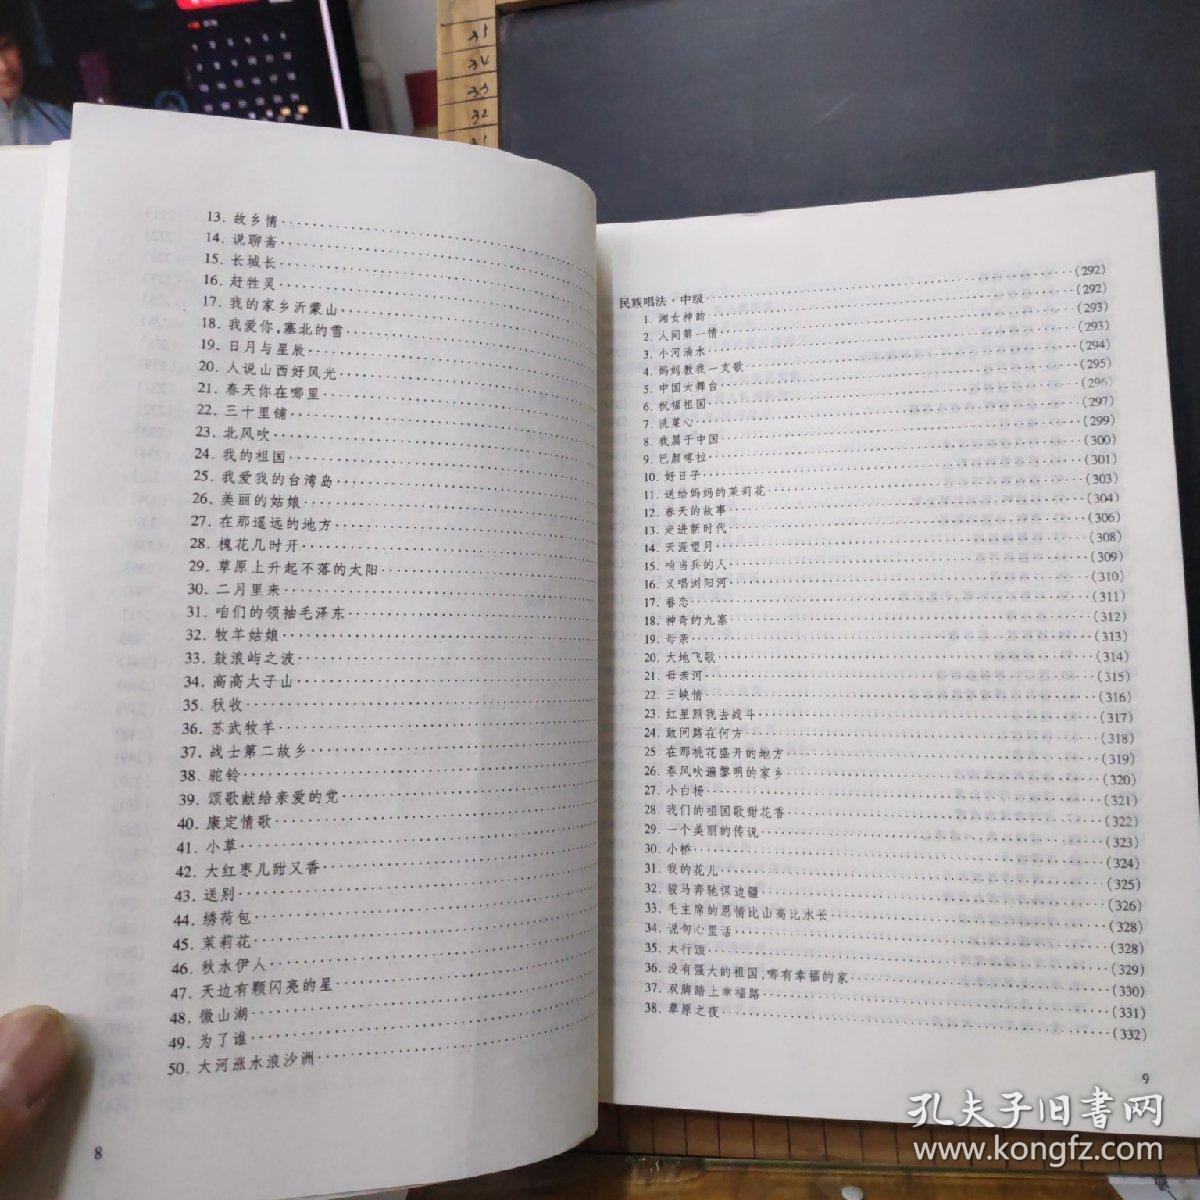 13. 故乡情……
14. 说聊斋……
15. 长城长……
16. 赶牲灵……
17. 我的家乡沂蒙山……
18. 我爱你,塞北的雪……
19. 日月与星辰……
20. 人说山西好风光……
21. 春天你在哪里……
22. 三十里铺……
23. 北风吹……
24. 我的祖国……
25. 我爱我的台湾岛……
26. 美丽的姑娘……
27. 在那遥远的地方……
28. 槐花几时开……
29. 草原上升起不落的太阳……
30. 二月里来……
31. 咱们的领袖毛泽东……
32. 牧羊姑娘……
33. 鼓浪屿之波……
34. 高高太子山……
35. 秋收……
36. 苏武牧羊……
37. 战士第二故乡……
38. 驼铃……
39. 颂歌献给亲爱的党……
40. 康定情歌……
41. 小草……
42. 大红枣儿甜又香……
43. 送别……
44. 绣荷包……
45. 茉莉花……
46. 秋水伊人……
47. 天边有颗闪亮的星……
48. 微山湖……
49. 为了谁……
50. 大河涨水浪沙洲……
8
民族唱法·中级……(292)
1. 湘女神韵……(292)
2. 人间第一情……(293)
3. 小河淌水……(293)
4. 妈妈教我一支歌……(294)
5. 中国大舞台……(295)
6. 祝福祖国……(296)
7. 洗菜心……(297)
8. 我属于中国……(299)
9. 巴颜喀拉……(300)
10. 好日子……(301)
11. 送给妈妈的茉莉花……(303)
12. 春天的故事……(304)
13. 走进新时代……(306)
14. 天涯望月……(308)
15. 咱当兵的人……(309)
16. 又唱浏阳河……(310)
17. 眷恋……(311)
18. 神奇的九寨……(312)
19. 母亲……(313)
20. 大地飞歌……(314)
21. 母亲河……(315)
22. 三峡情……(316)
23. 红星照我去战斗……(317)
24. 敢问路在何方……(318)
25. 在那桃花盛开的地方……(319)
26. 春风吹遍黎明的家乡……(320)
27. 小白杨……(321)
28. 我们的祖国歌甜花香……(322)
29. 一个美丽的传说……(323)
30. 小桥……(324)
31. 我的花儿……(325)
32. 骏马奔驰保边疆……(326)
33. 毛主席的恩情比山高比水长……(328)
34. 说句心里话……(328)
35. 太行颂……(329)
36. 没有强大的祖国,哪有幸福的家……(330)
37. 双脚踏上幸福路……(331)
38. 草原之夜……(332)
9
孔夫子旧书网
www.kongfz.com